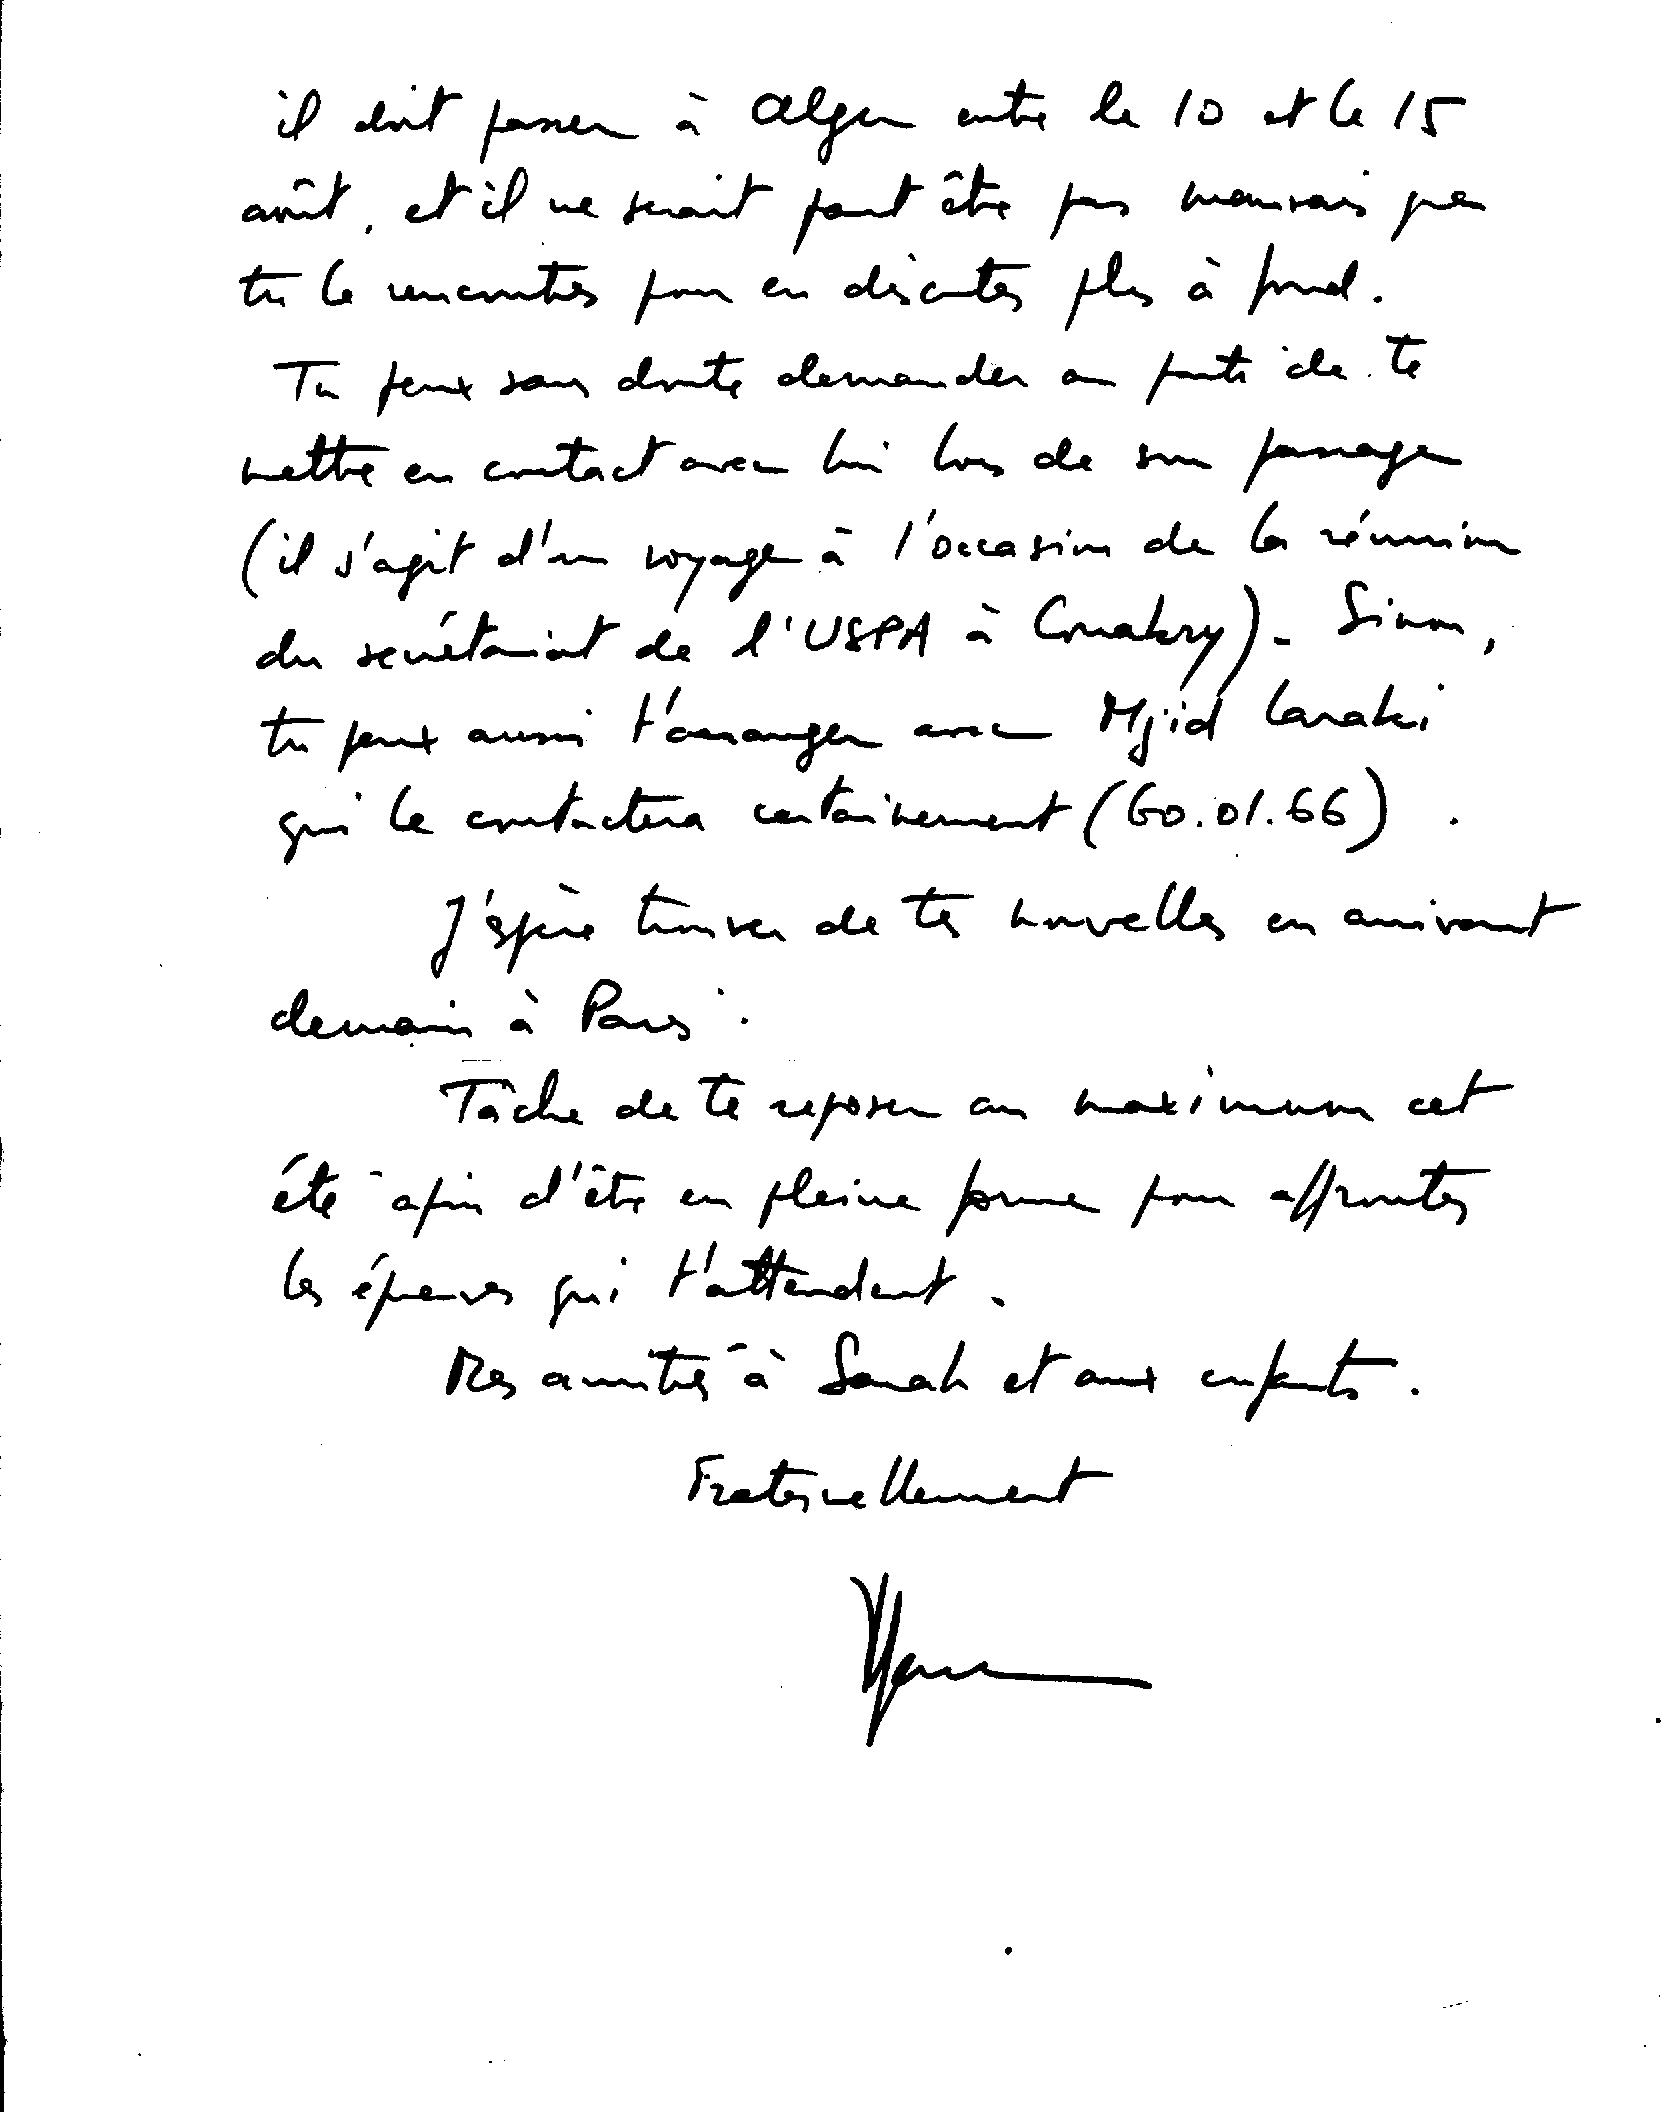 il doit passer à Alger entre le 10 et le 15
août, et il ne serait peut être pas mauvais que
tu le rencontres pour en discuter plus à fond.
Tu peux sans doute demander au parti de te
mettre en contact avec lui lors de son passage
(il s'agit d'un voyage à l'occasion de la réunion
du secrétariat de l'USPA à Conakry). Sinon,
tu peux aussi t'arranger avec Mjid Laraki
qui le contactera certainement (60.01.66).
J'espère trouver de tes nouvelles en arrivant
demain à Paris.
Tâche de te reposer au maximum cet
été afin d'être en pleine forme pour affronter
les épreuves qui t'attendent.
Mes amitiés à Sarah et aux enfants.
Fraternellement